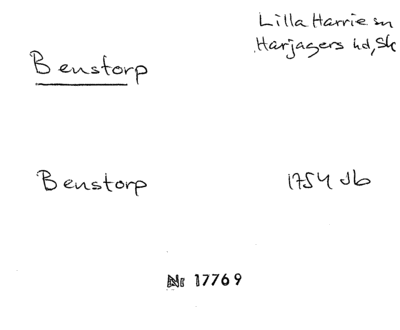 Lilla Harrie sn
Harjagers hd, Sk
Benstorp
Benstorp 1754 Jb
Nr 17769